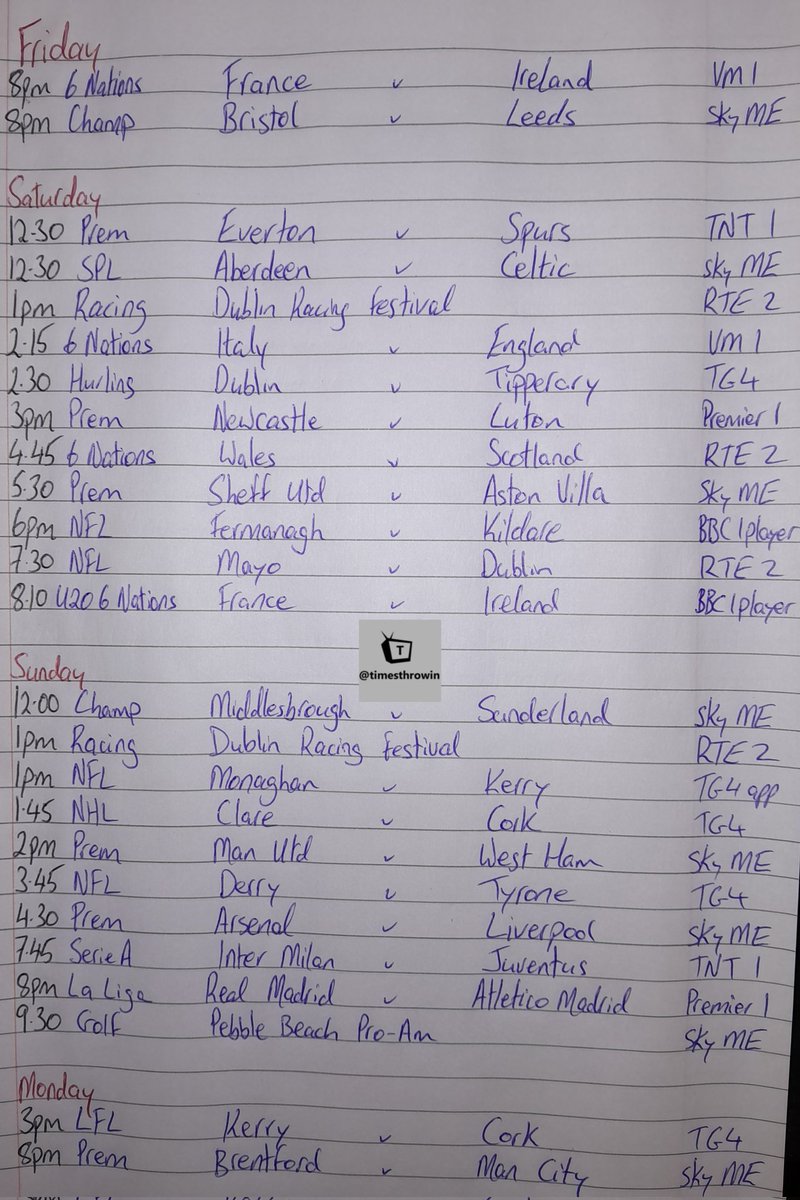 Friday
8pm 6 Nations France v Ireland VM 1
8pm Champ Bristol v Leeds Sky ME
Saturday
12.30 Prem Everton v Spurs TNT 1
12.30 SPL Aberdeen v Celtic Sky ME
1pm Racing Dublin Racing Festival RTE 2
2.15 6 Nations Italy v England VM 1
2.30 Hurling Dublin v Tipperary TG4
3pm Prem Newcastle v Luton Premier 1
4.45 6 Nations Wales v Scotland RTE 2
5.30 Prem Sheff Utd v Aston Villa Sky ME
6pm NFL Fermanagh v Kildare BBC Iplayer
7.30 NFL Mayo v Dublin RTE 2
8.10 U20 6 Nations France v Ireland BBC Iplayer
T
@timesthrowin
Sunday
12.00 Champ Middlesbrough v Sunderland Sky ME
1pm Racing Dublin Racing Festival RTE 2
1pm NFL Monaghan v Kerry TG4 app
1.45 NHL Clare v Cork TG4
2pm Prem Man Utd v West Ham Sky ME
3.45 NFL Derry v Tyrone TG4
4.30 Prem Arsenal v Liverpool Sky ME
7.45 Serie A Inter Milan v Juventus TNT 1
8pm La Liga Real Madrid v Atletico Madrid Premier 1
9.30 Golf Pebble Beach Pro-Am Sky ME
Monday
3pm LFL Kerry v Cork TG4
8pm Prem Brentford v Man City Sky ME